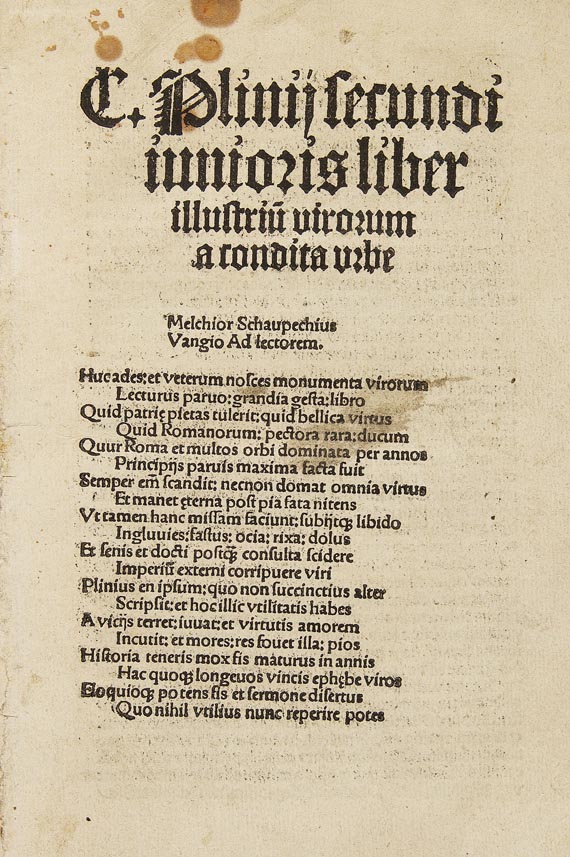 C. Plinij secundi
iunioris liber
illustriū virorum
a condita vrbe
Melchior Schaupechius
Vangio Ad lectorem.
Huc ades: et veterum nosces monumenta virorum
Lecturus paruo: grandia gesta: libro
Quid patrie pietas tulerit: quid bellica virtus
Quid Romanorum: pectora rara: ducum
Quur Roma et multos orbi dominata per annos
Principijs paruis maxima facta fuit
Semper em̄ scandit: necnon domat omnia virtus
Et manet ęterna post pia fata nitens
Vt tamen hanc missam faciunt: subijtqꝫ libido
Ingluuies: fastus: ocia: rixa: dolus
Et senis et docti postqꝫ̄ consulta scidere
Imperiū externi corripuere viri
Plinius en ipsum: quo non succinctius alter
Scripsit: et hoc illic vtilitatis habes
A vicijs terret: iuuat: et virtutis amorem
Incutit: et mores: res fouet illa: pios
Historia teneris mox fis maturus in annis
Hac quoqꝫ longeuos vincis ephębe viros
Eloquioqꝫ potens fis et sermone disertus
Quo nihil vtilius nunc reperire potes